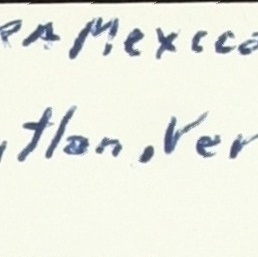 RA Mexico
ytlan, Ver